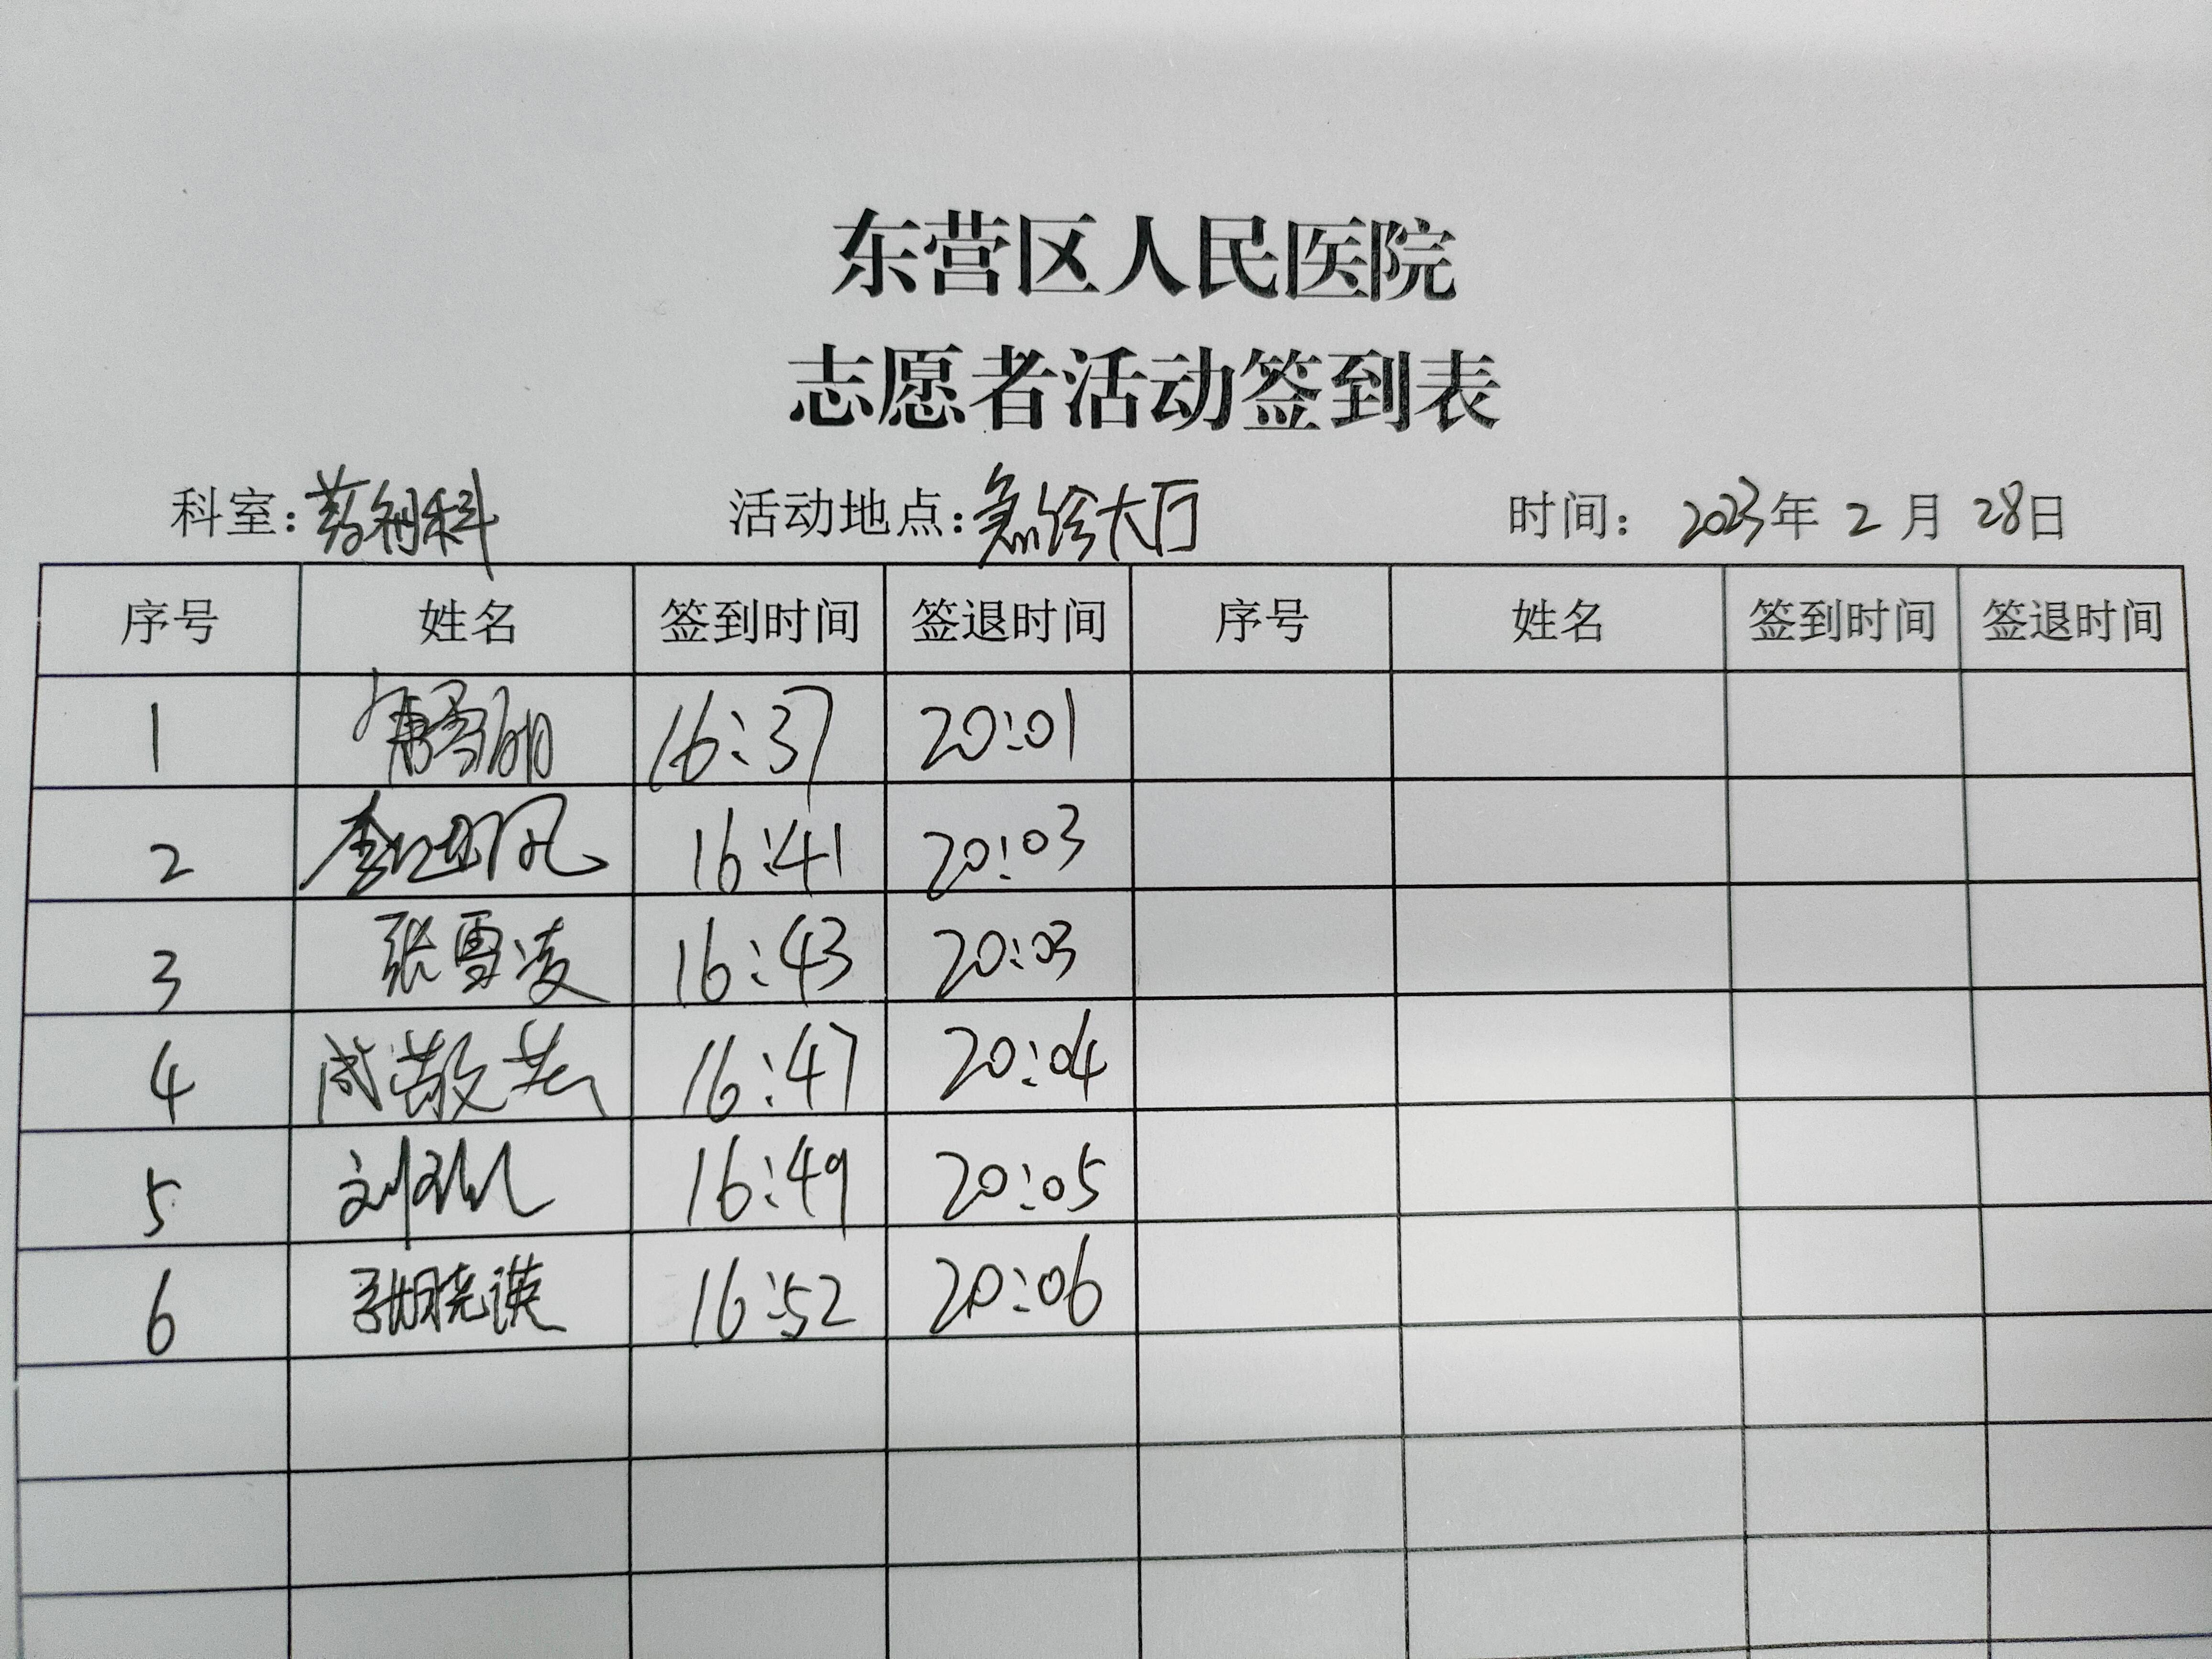 东营区人民医院
志愿者活动签到表
科室:药剂科 活动地点:急诊大厅 时间: 2023年 2 月 28日
序号 姓名 签到时间 签退时间 序号 姓名 签到时间 签退时间
1 16:37 20:01
2 16:41 20:03
3 张雪凌 16:43 20:03
4 16:47 20:04
5 16:49 20:05
6 16:52 20:06